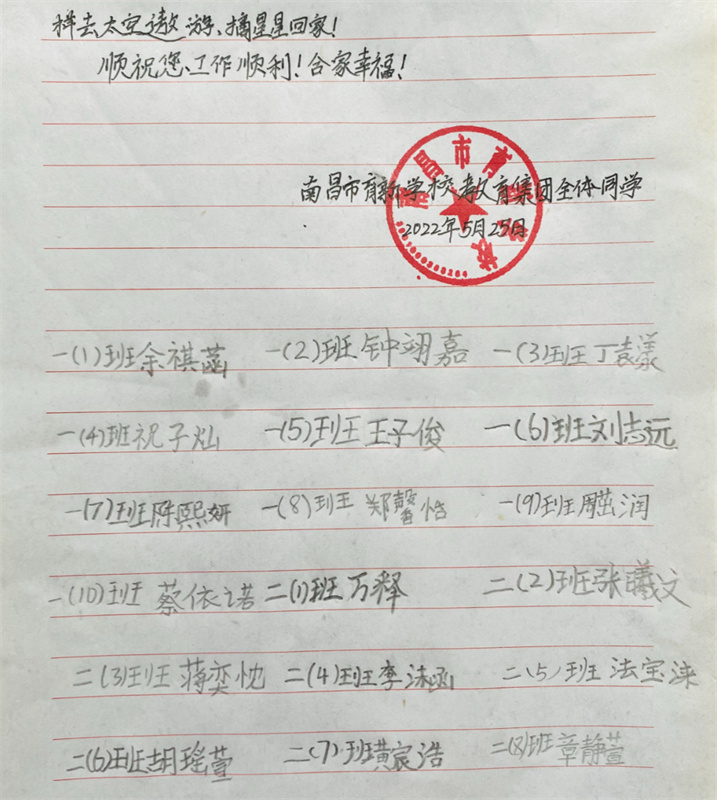 样去太空遨游、摘星星回家！
顺祝您、工作顺利！合家幸福！
南昌市育新学校教育集团全体同学
2022年5月25日
一(1)班余祺菡 一(2)班钟翊嘉 一(3)班丁袁漾
一(4)班祝子灿 一(5)班王子俊 一(6)班刘志远
一(7)班陈熙妍 一(8)班郑馨恬 一(9)班周茁润
一(10)班蔡依诺 二(1)班万释 二(2)班张曦文
二(3)班蒋奕忱 二(4)班李沫函 二(5)班法宝涞
二(6)班胡瑶萱 二(7)班黄宸浩 二(8)班章静萱